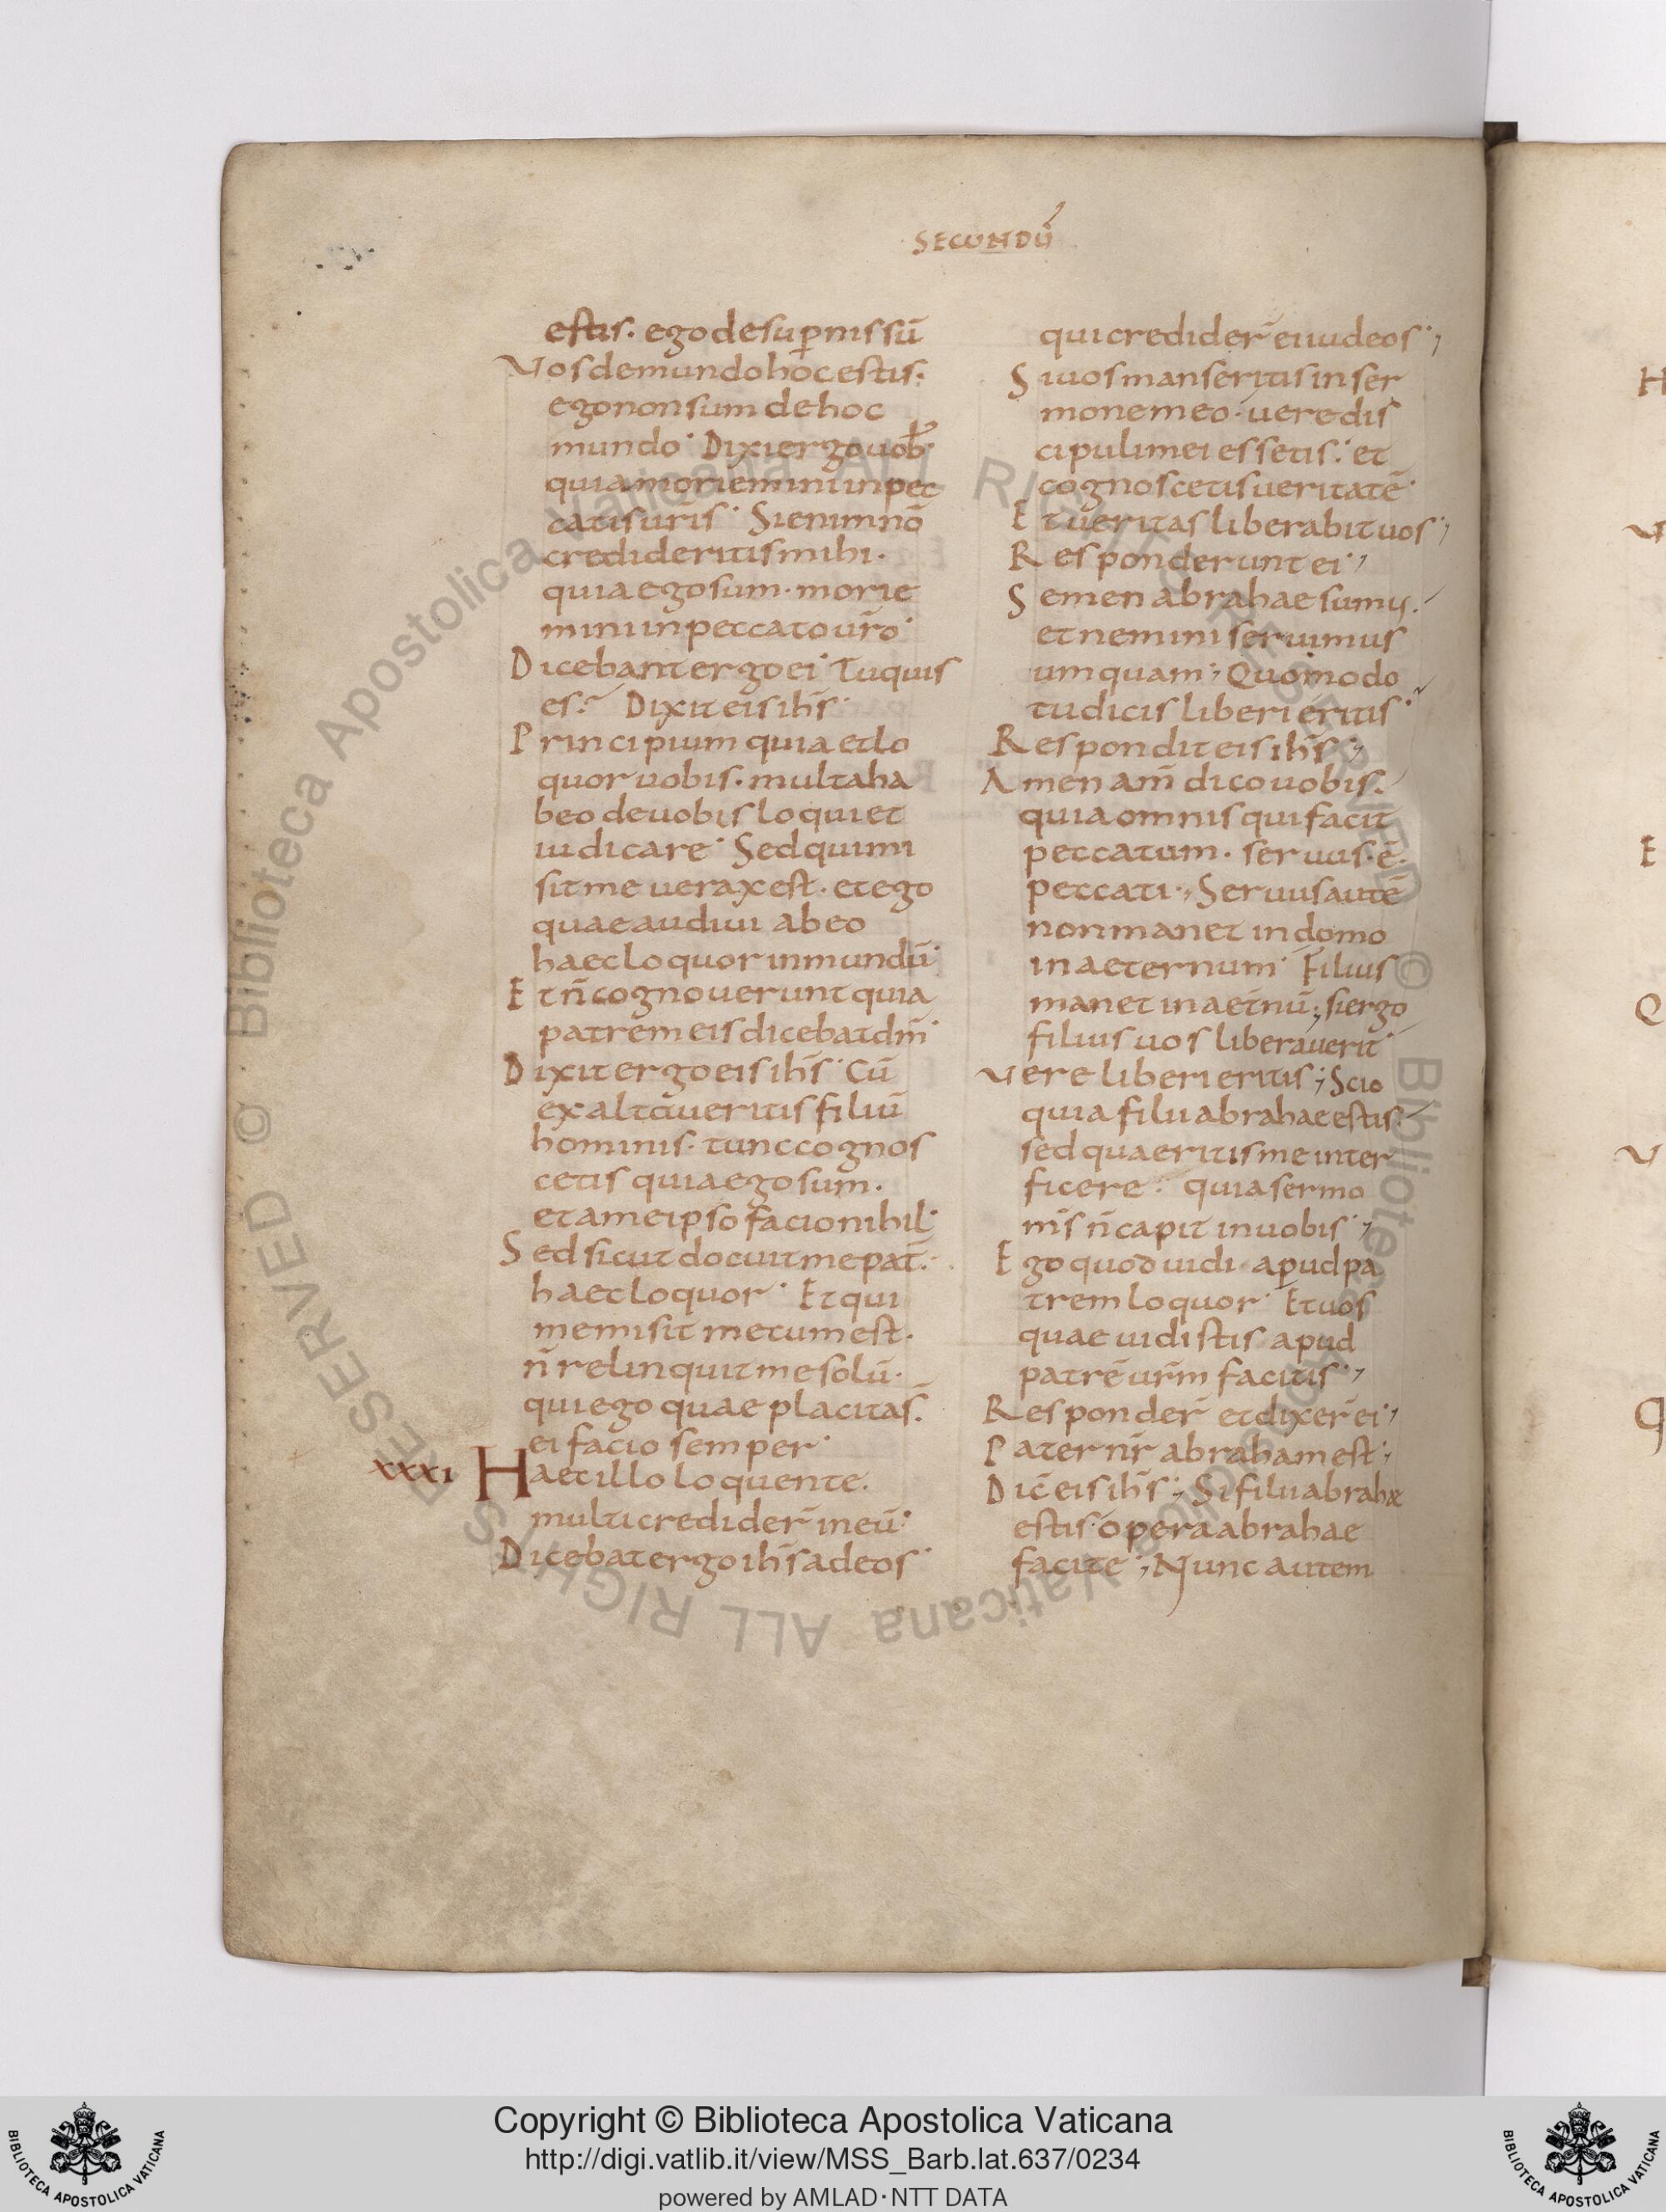 SECUNDŪ
estis. ego desup̄nis sū
Vos de mundo hoc estis.
ego non sum de hoc
mundo. Dixi ergo uob̄
quia moriemini in pec
catis ūris. Si enim nō
credideritis mihi.
quia ego sum. morie
mini in peccato ūro.
Dicebant ergo ei. Tu quis
es? Dixit eis ih̄s.
Principium quia et lo
quor uobis. multa ha
beo de uobis loqui et
iudicare. Sed qui mi
sit me uerax est. et ego
quae audiui ab eo
haec loquor in mundū.
Et n̄ cognouerunt quia
patrem eis dicebat dm̄.
Dixit ergo eis ih̄s. Cū
exaltaueritis filiū
hominis. tunc cognos
cetis quia ego sum.
et a me ipso facio nihil.
Sed sicut docuit me pat̄.
haec loquor. Et qui
me misit mecum est.
n̄ relinquit me solū.
qui ego quae placita s̄.
ei facio semper.
XXXI Haec illo loquente.
multi credider̄ in eū.
Dicebat ergo ih̄s ad eos.
qui credider̄ ei iudeos.,
Si uos manseritis in ser
mone meo. uere dis
cipuli mei essetis. et
cognoscetis ueritatē.
Et ueritas liberabit uos.,
Responderunt ei.,
Semen abrahae sumus.
et nemini seruimus
umquam; Quomodo
tu dicis liberi eritis.
Respondit eis ih̄s.,
Amen am̄ dico uobis.
quia omnis qui facit
peccatum. seruus. ē.
peccati., Seruus autē
non manet in domo
in aeternum. Filius
manet in aet̄nū; si ergo
filius uos liberauerit.
Vere liberi eritis; Scio
quia filii abrahae estis.
sed quaeritis me inter
ficere. quia sermo
m̄s n̄ capit in uobis.,
Ego quod uidi apud pa
trem loquor. Et uos
quae uidistis apud
patrē ur̄m facitis.,
Responder̄ et dixer̄ ei.,
Pater nr̄ abraham est;
Dic̄ eis ih̄s; Si filii abrahae
estis. opera abrahae
facite.; Nunc autem
Copyright © Biblioteca Apostolica Vaticana
http://digi.vatlib.it/view/MSS_Barb.lat.637/0234
powered by AMLAD·NTT DATA